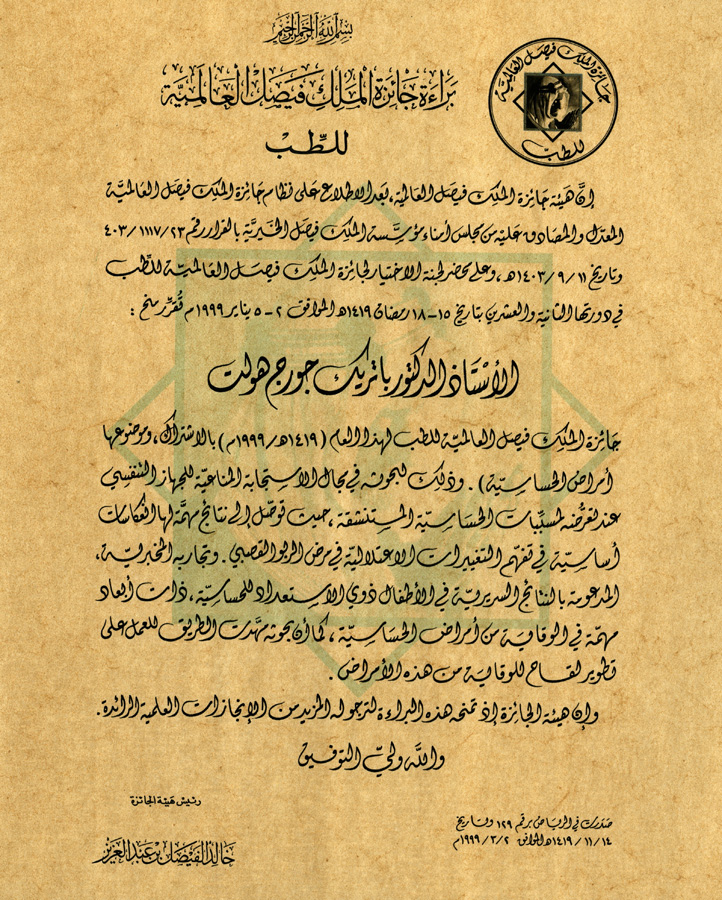 بسم الله الرحمن الرحيم
براءة جائزة الملك فيصل العالمية
للطب
جائزة الملك فيصل العالمية
للطب
إن هيئة جائزة الملك فيصل العالمية، بعد الاطلاع على نظام جائزة الملك فيصل العالمية
المعدل والمصادق عليه من مجلس أمناء مؤسسة الملك فيصل الخيرية بالقرار رقم ٤٠٣/١١١٧/٢٣
وتاريخ ١٤٠٣/٩/١١هـ، وعلى محضر لجنة الاختيار لجائزة الملك فيصل العالمية للطب
في دورتها الثانية والعشرين بتاريخ ١٥-١٨ رمضان ١٤١٩هـ الموافق ٢-٥ يناير ١٩٩٩م تقرر منح :
الأستاذ الدكتور باتريك جورج هولت
جائزة الملك فيصل العالمية للطب لهذا العام (١٤١٩هـ/١٩٩٩م) بالاشتراك، وموضوعها
أمراض الحساسية). وذلك لبحوثه في مجال الاستجابة المناعية للجهاز التنفسي
عند تعرضه لمسببات الحساسية المستنشقة، حيث توصل إلى نتائج مهمة لها انعكاسات
أساسية في تفهم التغييرات الاعتلالية في مرض الربو القصبي. وتجاربه المخبرية،
المدعومة بالنتائج السريرية في الأطفال ذوي الاستعداد للحساسية، ذات أبعاد
مهمة في الوقاية من أمراض الحساسية، كما أن بحوثه مهدت الطريق للعمل على
تطوير لقاح للوقاية من هذه الأمراض.
وإن هيئة الجائزة إذ تمنحه هذه البراءة لترجو له المزيد من الإنجازات العلمية الرائدة.
والله ولي التوفيق
رئيس هيئة الجائزة
خالد الفيصل بن عبد العزيز
صدرت في الرياض برقم ١٢٩ وتاريخ
١٤١٩/١١/١٤هـ الموافق ١٩٩٩/٣/٢م